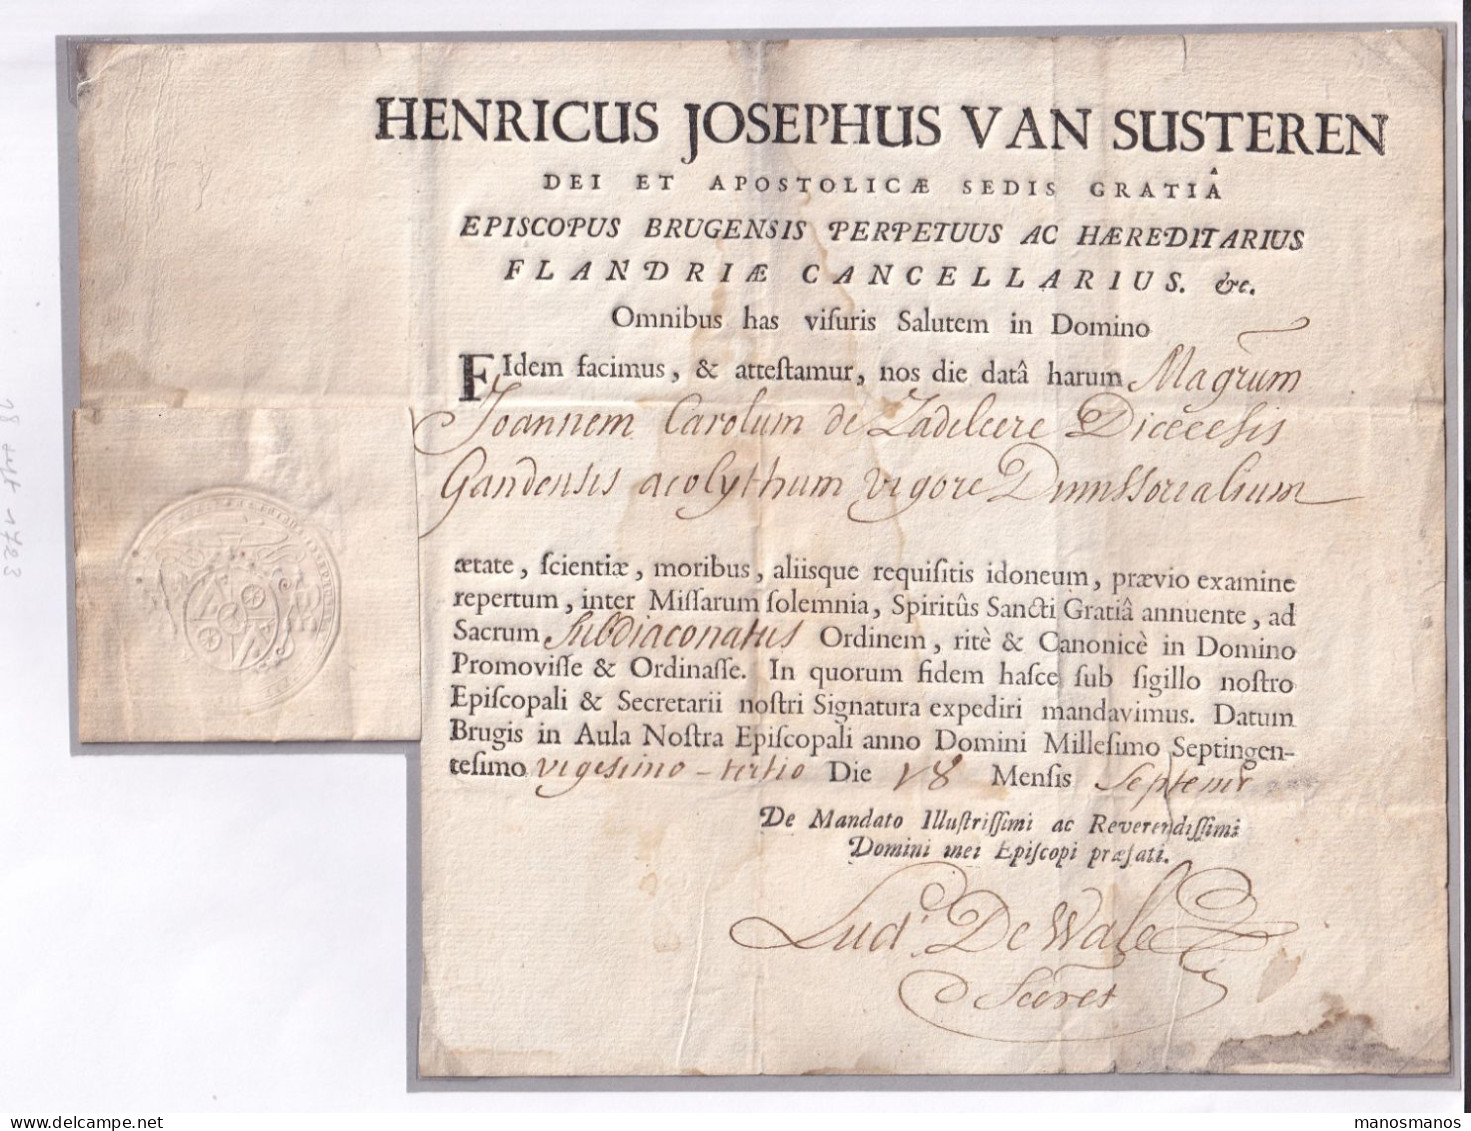 HENRICUS JOSEPHUS VAN SUSTEREN
DEI ET APOSTOLICÆ SEDIS GRATIÂ
EPISCOPUS BRUGENSIS PERPETUUS AC HÆREDITARIUS
FLANDRIÆ CANCELLARIUS. &c.
Omnibus has viſuris Salutem in Domino
FIdem facimus, & atteſtamur, nos die datâ harum Magrum
Joannem Carolum de Zadeleere Diœcesis
Gandensis acolythum vigore Dimissorialium
ætate, ſcientiæ, moribus, aliisque requiſitis idoneum, prævio examine
repertum, inter Miſſarum ſolemnia, Spiritûs Sancti Gratiâ annuente, ad
Sacrum Subdiaconatus Ordinem, ritè & Canonicè in Domino
Promoviſſe & Ordinaſſe. In quorum fidem haſce ſub ſigillo noſtro
Epiſcopali & Secretarii noſtri Signatura expediri mandavimus. Datum
Brugis in Aula Noſtra Epiſcopali anno Domini Milleſimo Septingen-
teſimo vigesimo-tertio Die 18 Menſis Septembr
De Mandato Illuſtriſſimi ac Reverendiſſimi
Domini mei Epiſcopi præfati.
Lud. De Wale
Secret
18 sept 1723
manosmanos